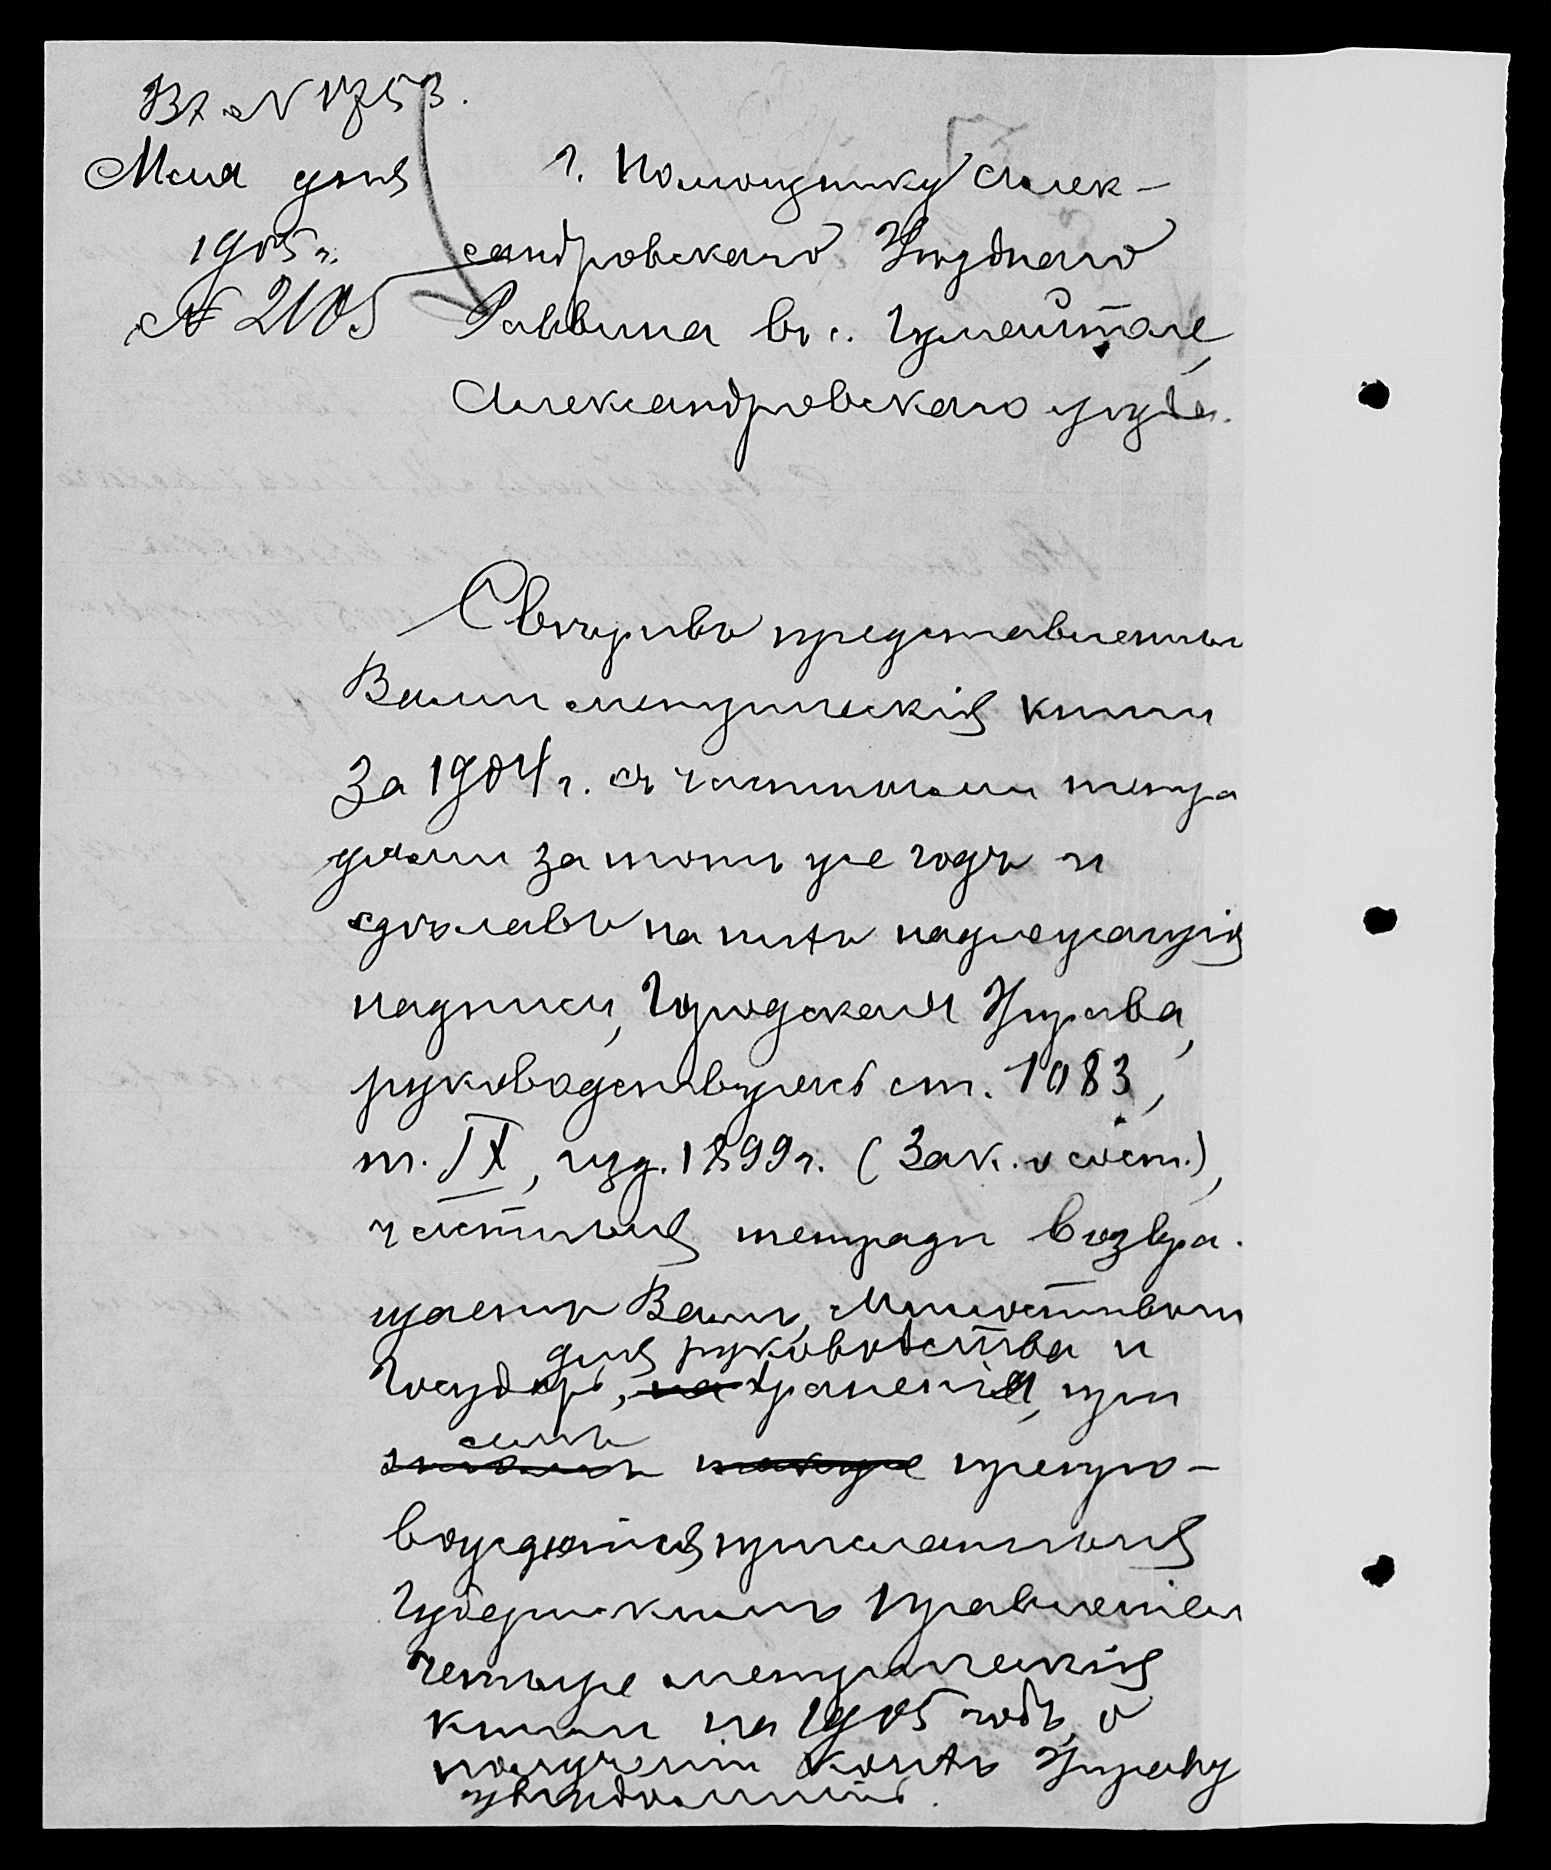 Вх № 1753.
Мая дня
1905 г.
№ 2105
г. Помощнику Алек-
сандровскаго Уѣзднаго
Раввина въ с. Гуляйполе,
Александровскаго уѣзда.
Свѣривъ представленныя
Вами метрическія книги
за 1904 г. съ частными тетра
дями за тотъ же годъ и
сдѣлавъ на нихъ надлежащія
надписи, Городская Управа,
руководствуясь ст. 1083,
т. IX, изд. 1899 г. (Зак. о сост.),
частныя тетради возвра-
щаетъ Вамъ, Милостивый
для руководства и
Государь, на храненія, при
симъ
также препро-
вождаются присланныя
Губернскимъ Правленіем
четыре метрическія
книги на 1905 годъ, о
полученіи коихъ Управу
увѣдомить.